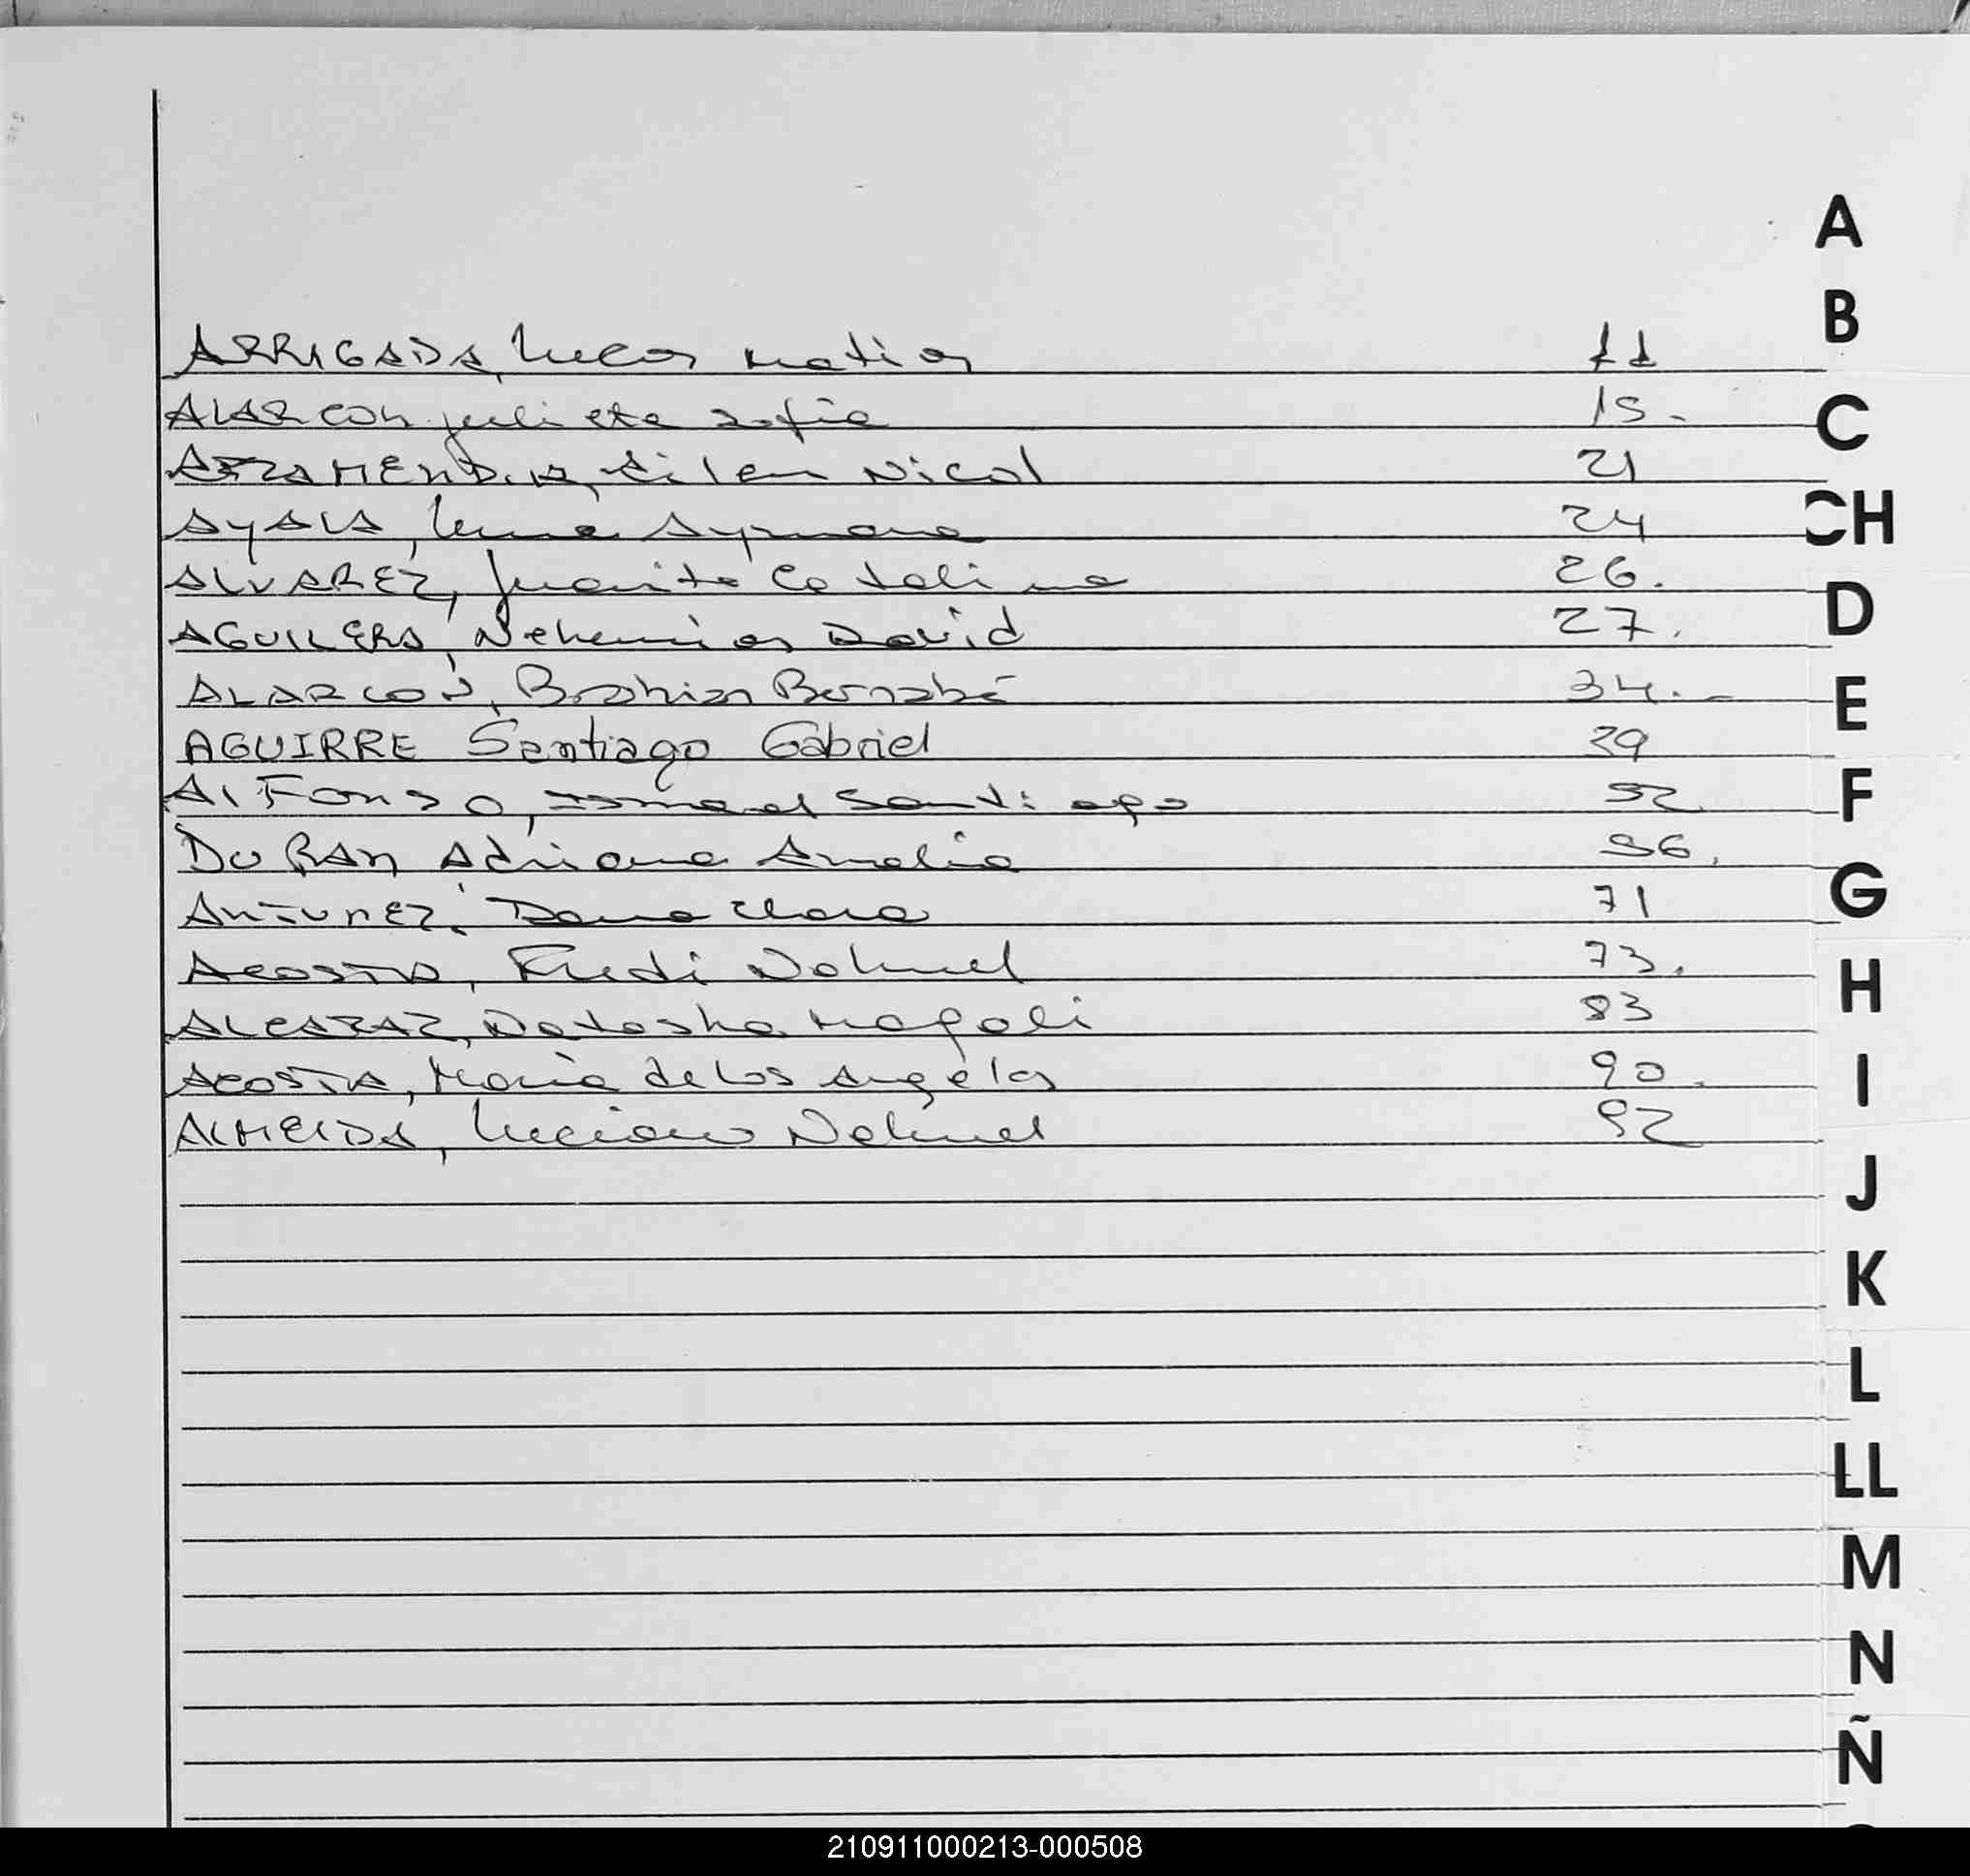 A
B
ARRIGADA, Lucas Matias 11
ALARCON Julieta Sofia 15.
C
AIZAMENDIA, Ailen Nicol 21
CH
AYALA, Luna Aymara 24
ALVAREZ, Juanita Catalina 26.
D
AGUILERA, Nehemias David 27.
E
ALARCON, Brahian Bernabé 34.-
AGUIRRE Santiago Gabriel 39
F
ALFONSO, Ismael Santiago 52
DURAN Adriana Amalia 56.
G
ANTUNEZ, Dana Clara 71
ACOSTA, Fredi Nahuel 73.
H
ALCARAZ, Natasha Magali 83
I
ACOSTA, María de los Angeles 90.
ALMEIDA, Luciano Nahuel 92
J
K
L
LL
M
N
Ñ
210911000213-000508